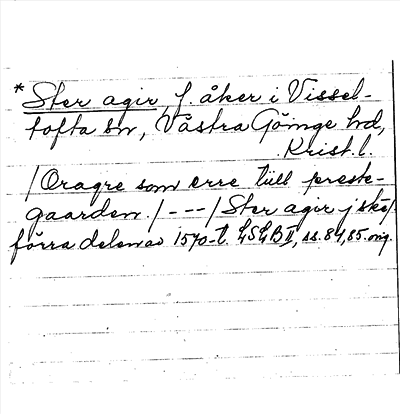 * Ster agir, f. åker i Vissel-
tofta sn, Västra Göinge hd,
Krist. l.
/Oragre som erre tiill preste-
gaarden./---/Ster agir j ske/
förra delen av 1570-t. LSLB II, ss. 84, 85. orig.